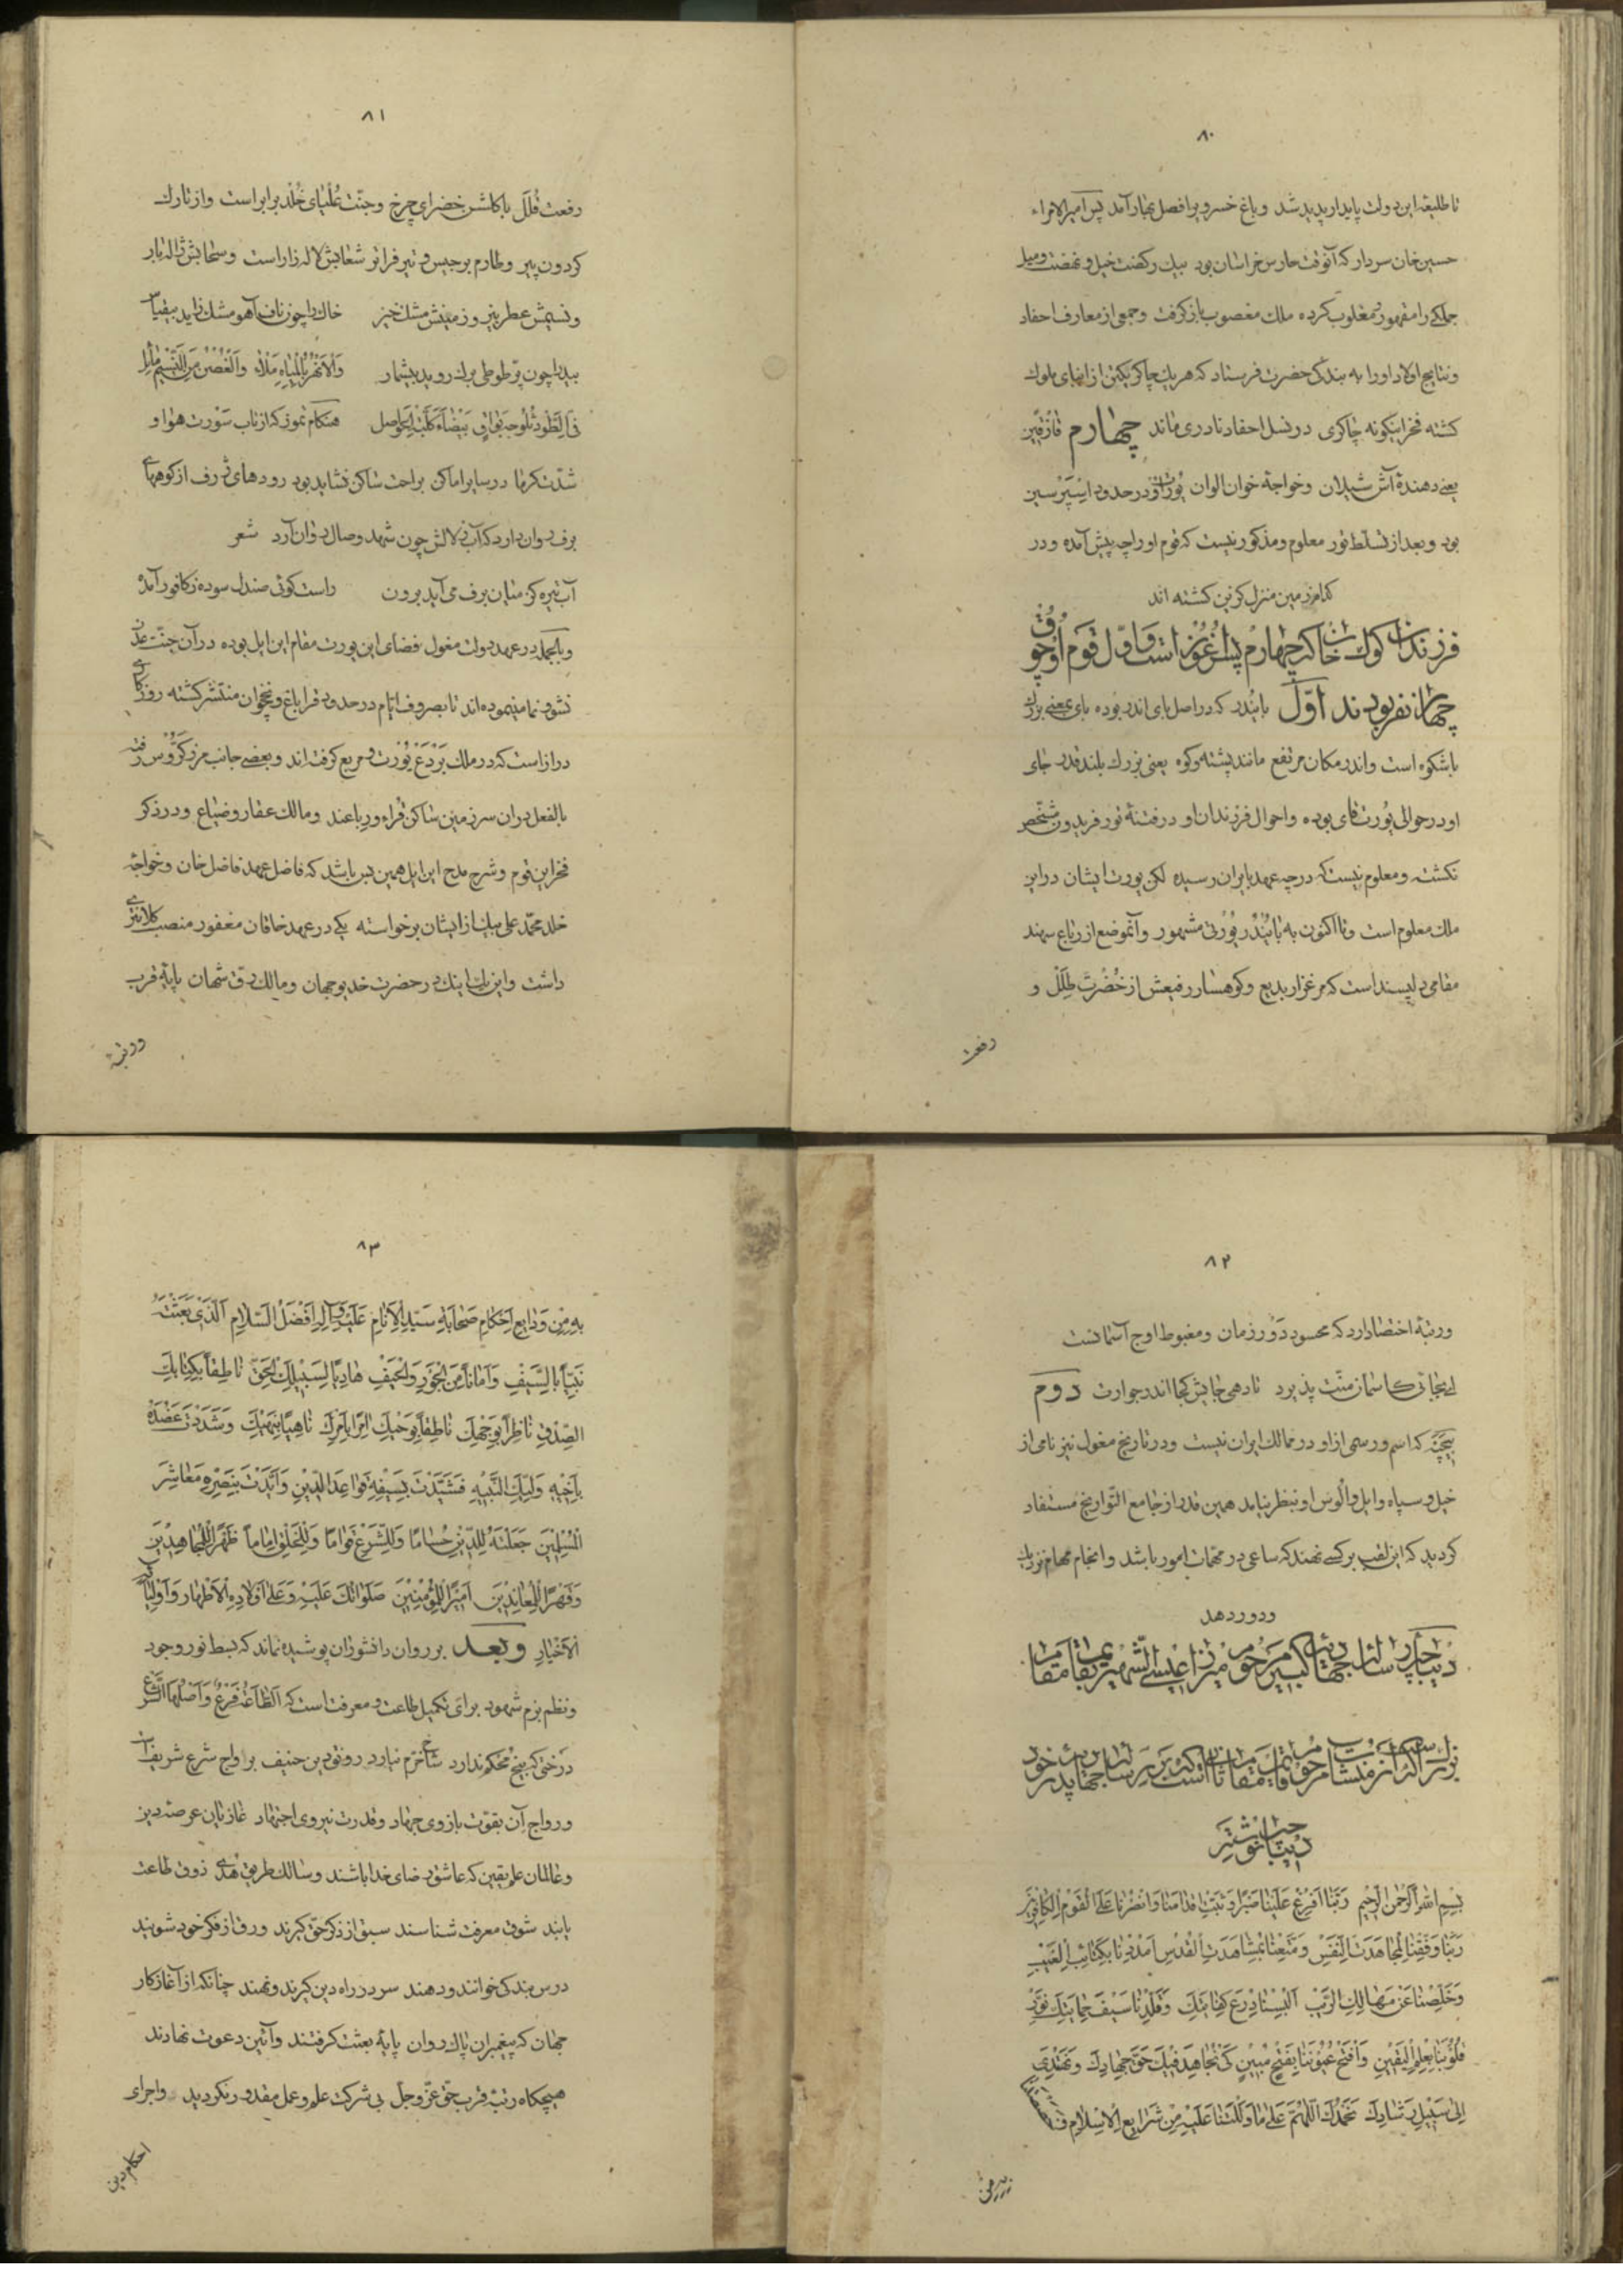 ۸۰
تا طلیعهٔ این دولت پایدار پدید شد و باغ خسرو را فصل بهار آمد پس امیرالامراء
حسین خان سردار که آنوقت حارس خراسان بود بیک رکضت خیل و نهضت ومیل
جملکی را مقهور و مغلوب کرده ملک مغصوب باز گرفت و جمعی از معارف احفاد
و نتایج اولاد او را به بندگی حضرت فرستاد که هر یک چاکر یکتن از ابنای ملوک
کشته فخر اینکونه چاکری در نسل احفاد نادری ماند چهارم
یعنی دهندهٔ آش شیلان و خواجهٔ خوان الوان یورت او در حدود
بود و بعد از تسلط تور معلوم و مذکور نیست که قوم او را چه پیش آمده و در
کدام زمین منزل گزین کشته اند
فرزندان کوک خان که چهارم پسر اغوز است و اول قوم اوجوق
چهار نفر بودند اوّل بایندر که در اصل بای اندر بوده بای بمعنی بزرک
باشکوه است و اندر مکان مرتفع مانند پشته و کوه یعنی بزرک بلند قدر جای
او در حوالی یورت قای بوده و احوال فرزندان او در فتنهٔ تور فریدون مشخص
نکشته و معلوم نیست که در چه عهد بایران رسیده لکن یورت ایشان در این
ملک معلوم است و تا اکنون به بایندر یورتی مشهور و آنموضع از رباع سهند
مقامی دلپسند است که مرغزار بدیع و کوهسار رفیعش از خضرت طلل و
رفعت
۸۱
رفعت قلل با کلشن خضرای چرخ و جنّت علیای خلد برابر است و از تارک
کردون پیر و طارم برجیس و تیر فراتر شعابش لاله زار است و سحابش ژاله بار
و نسیمش عطر بیز و زمینش مشک خیز خاک را چون ناف آهو مشک زاید بیقیاس
بید را چون پر طوطی برک روید بیشمار والانهر بالمیاه ملاٰ والغصن من النسیم مائل
فی الطود ثلوجه بواق بیضاء کلبد الحواصل هنکام تموز که از تاب سورت هوا و
شدت کرما در سایر اماکن براحت ساکن نشاید بود رودهای ژرف از کوههای
برف روان دارد که آب زلالش چون شهد وصال روان آرد شعر
آب تیره کز میان برف می آید برون راست کوئی صندل سوده ز کافور آمده
و بالجمله در عهد دولت مغول فضای این یورت مقام این ایل بوده در آن جنّت عدن
نشو و نما مینموده اند تا بصروف ایام در حدود قراباغ و نخجوان منتشر کشته روزکاری
دراز است که در ملک بردع یورت و مربع کرفته اند و بعضی جانب مرز رفته
بالفعل در ان سرزمین ساکن قراء و رباعند و مالک عقار و ضیاع و در ذکر
فخر این قوم و شرح مدح این ایل همین بس باشد که فاضل عهد فاضل خان و خواجهٔ
خلد محمّد علی بیک از ایشان برخواسته یکی در عهد خاقان مغفور منصب کلانتری
داشت و این یک اینک در حضرت خدیو جهان و مالک رق شهان پایهٔ قرب
و رتبهٔ
۸۲
و رتبهٔ اختصاص دارد که محسود دور زمان و مغبوط اوج آسمانست
ای بجائی کاسمان منّت پذیرد تا دهی جایش کجا اندر جوارت دوم
بیچنه که اسم و رسمی از او در ممالک ایران نیست و در تاریخ مغول نیز نامی از
خیل و سپاه و ایل و الوس او بنظر نیامد همین قدر از جامع التواریخ مستفاد
کردید که این لقب بر کسی نهند که ساعی در مهمّات امور باشد و انجام مهام نزدیک
و دور دهد
دیباچه رسالهٔ جهادیهٔ کبیر مرحوم میرزا عیسی الشهیر بقایم مقام
نیز اسکن از منشآت مرحوم قایم مقام ثانی است که بر رسالهٔ جهادیهٔ پدر خود
دیباچه نوشته
بسم الله الرحمن الرحیم ربّنا افرغ علینا صبراً وثبّت اقدامنا وانصرنا علی القوم الکافرین
ربّنا وفّقنا لمجاهدت النفس ومتّعنا بمشاهدت القدس امددنا بکتائب الغیب
وخلّصنا عن مهالک الریب البسنا درع کفایتک وقلّدنا سیف حمایتک نوّر
قلوبنا بعلم الیقین وافتح عیوننا بفتح مبین کی نجاهد فیک حق جهادک ونهتدی
الی سبیل رشادک نحمدک اللهم علی ما دللتنا علیه من شرایع الاسلام
۸۳
به من ودایع احکام صحابة سید الانام علیه وآله افضل السلام الذی بعثته
نبیّاً بالسیف واماناً من الجور والحیف هادیاً لسبیلک الحق ناطقاً بکتابک
الصدق ناظراً بوجهک ناطقاً بوحیک آمراً بامرک ناهیاً بنهیک وشددت عضده
باخیه ولیّک النبیه فشیّدت بسیفه قواعد الدین وایّدت بنصره معاشر
المسلمین جعلته للدین حساماً وللشرع قواماً وللخلق اماماً ظهراً للمجاهدین
وقهراً للمعاندین امیراً للمؤمنین صلواتک علیه وعلی اولاده الاطهار واولیائه
الاخیار وبعد بر روان دانشوران پوشیده نماند که بسط نور وجود
و نظم بزم شهود برای تکمیل طاعت و معرفت است که الطاعة فرع واصلها الشرع
درختی که بیخ محکم ندارد شاخ خرم نیارد رونق دین حنیف برواج شرع شریف است
و رواج آن بقوّت بازوی جهاد و قدرت نیروی اجتهاد غازیان عرصهٔ دین
و عالمان علم یقین که عاشق رضای خدا باشند و سالک طریق هدی ذوق طاعت
یابند شوق معرفت شناسند سبق از ذکر حق کیرند ورق از فکر خود شویند
درس بندگی خوانند و دهند سر در راه دین کیرند و نهند چنانکه از آغاز کار
جهان که پیغمبران پاک روان پایهٔ بعثت کرفتند و آئین دعوت نهادند
هیچکاه رتبهٔ قرب حق عزّ و جلّ بی شرکت علم و عمل مقدور نکردید و اجرای
احکام دین